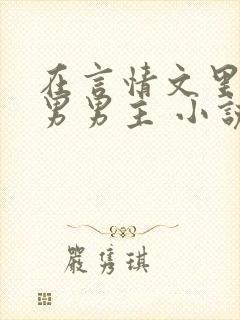 在言情文里
男男主 小說
嚴雋琪